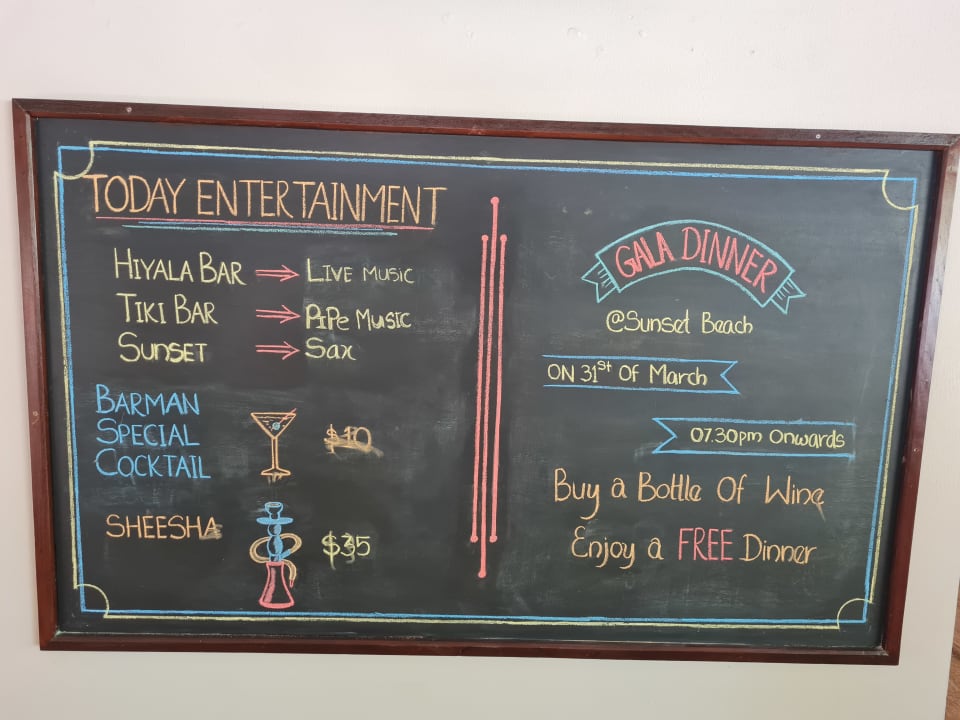 TODAY ENTERTAINMENT
HIYALA BAR LIVE MUSIC
TIKI BAR PiPe MuSIC
SuNSET Sax
BARMAN
SPECIAL
COCKTAIL
$10
SHEESHA $35
GALA DINNER
@Sunset Beach
ON 31st Of March
07.30pm Onwards
Buy a Bottle Of Wine
Enjoy a FREE Dinner